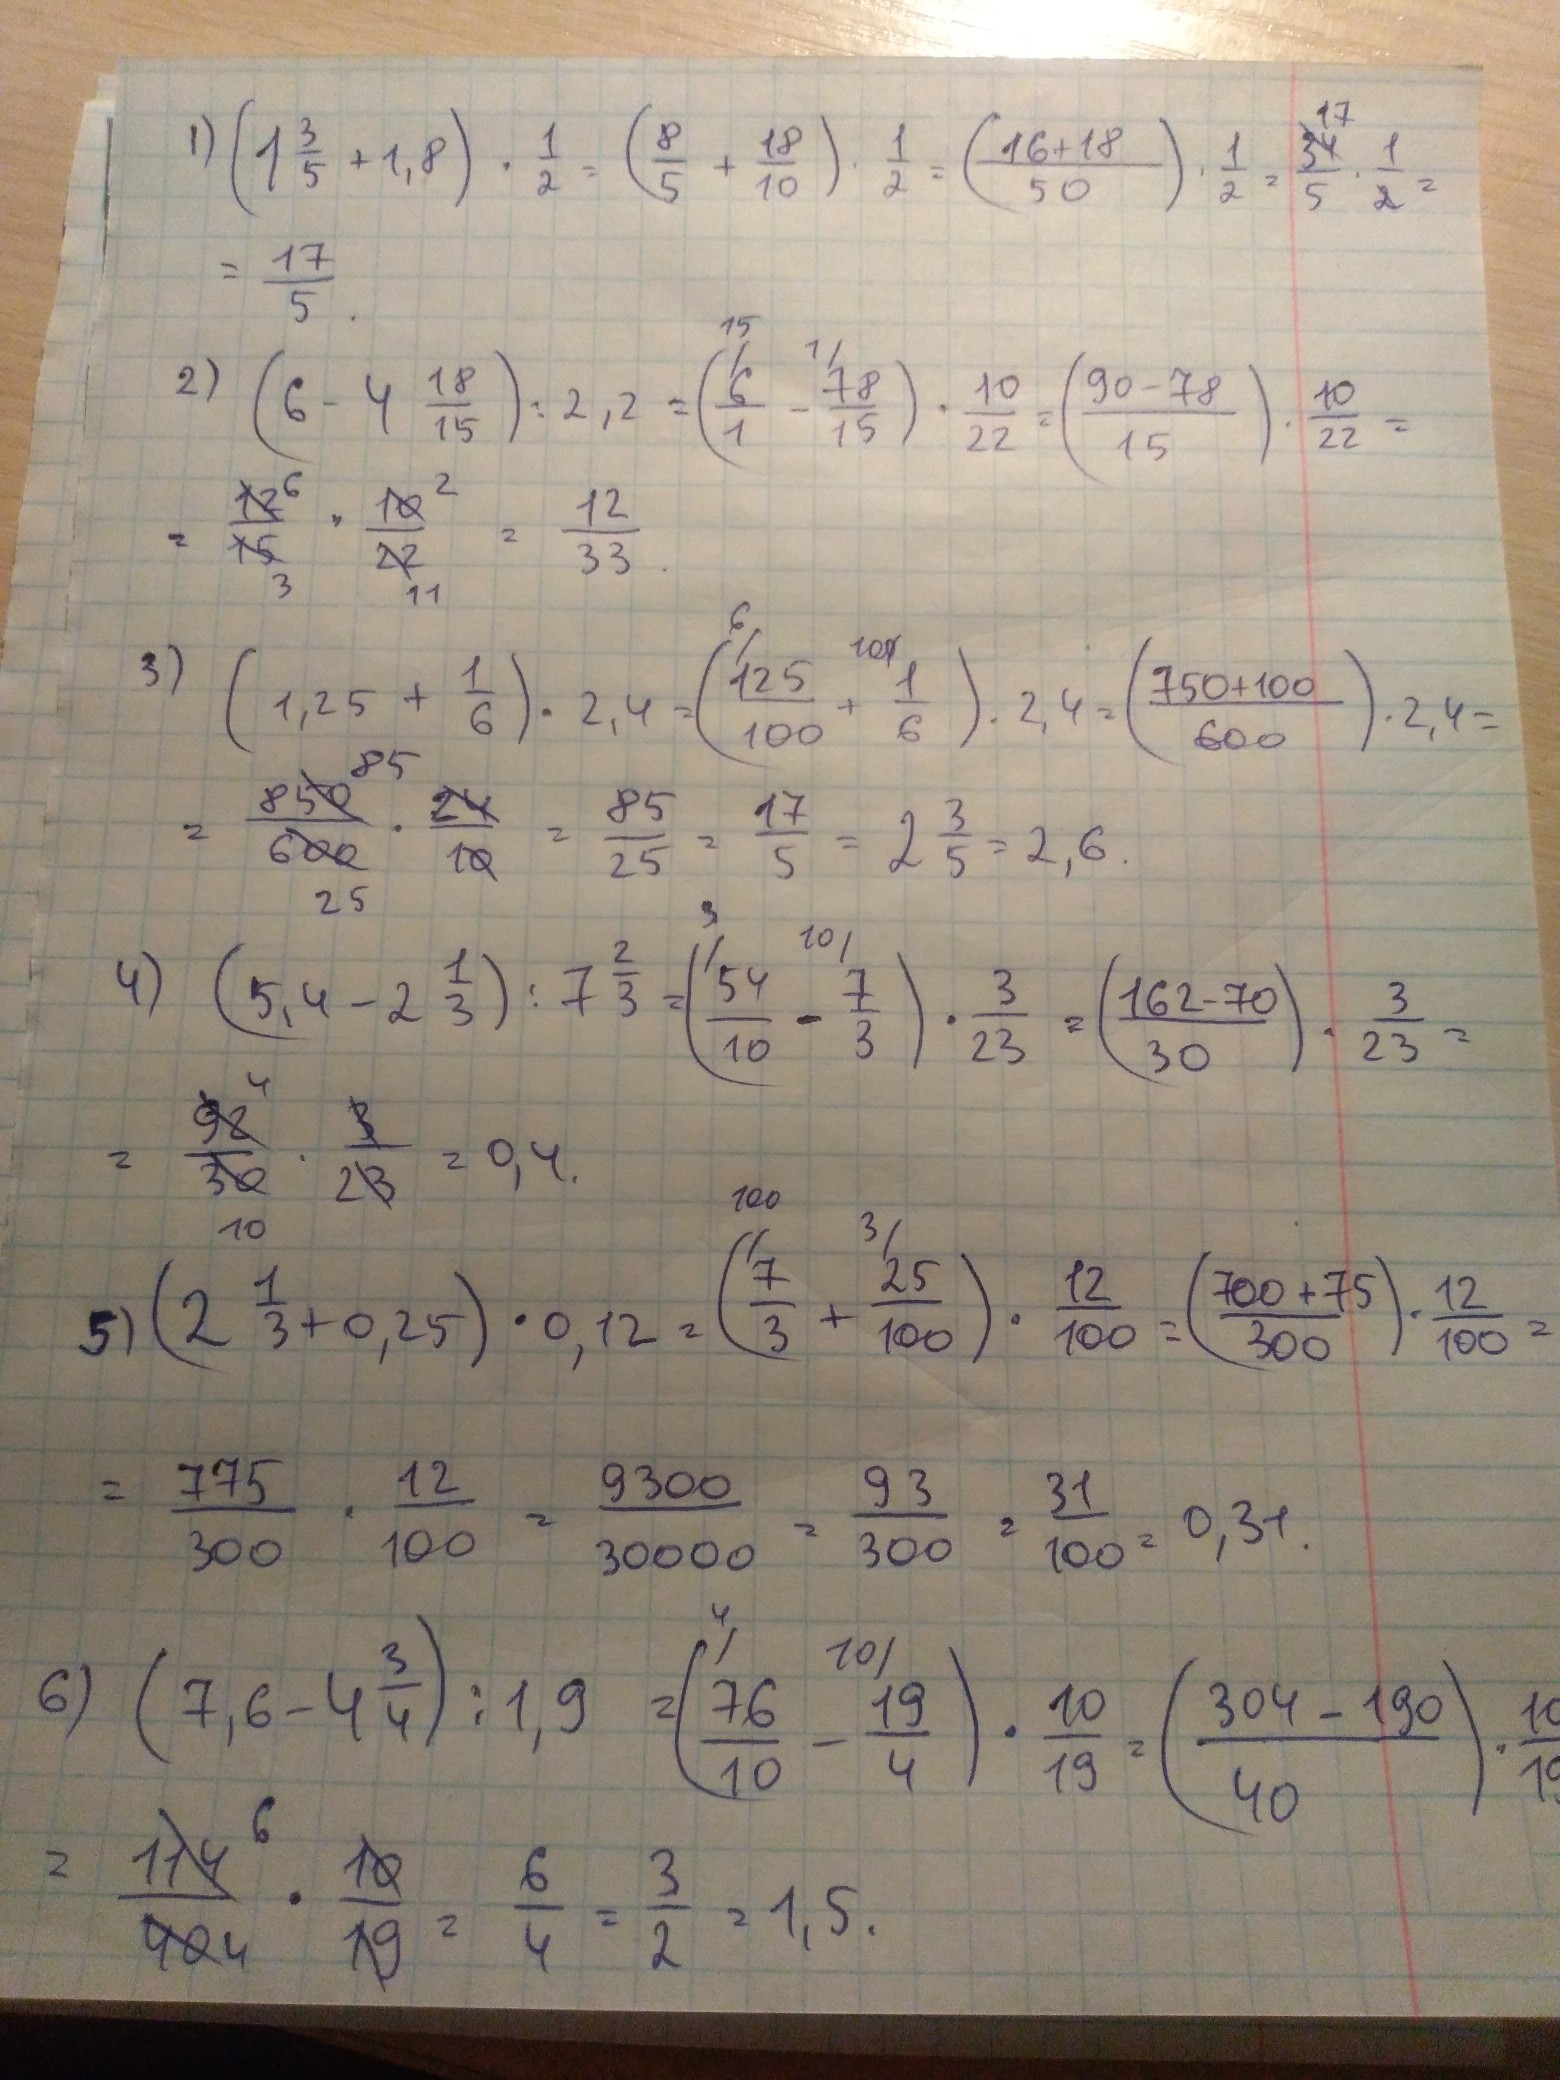 1) (1 3/5 + 1,8) · 1/2 = (8/5 + 18/10) · 1/2 = ((16+18)/50) · 1/2 = 34/5 17 · 1/2 =
= 17/5 .
2) (6 - 4 18/15) : 2,2 = (15/ 6/1 - 1/ 78/15) · 10/22 = ((90-78)/15) · 10/22 =
= 12/15 6 3 · 10/22 2 11 = 12/33 .
3) (1,25 + 1/6) · 2,4 = (6/ 125/100 + 100/ 1/6) · 2,4 = ((750+100)/600) · 2,4 =
= 850/600 85 25 · 24/10 = 85/25 = 17/5 = 2 3/5 = 2,6.
4) (5,4 - 2 1/3) : 7 2/3 = (3/ 54/10 - 10/ 7/3) · 3/23 = ((162-70)/30) · 3/23 =
= 92/30 4 10 · 3/23 = 0,4.
5) (2 1/3 + 0,25) · 0,12 = (100/ 7/3 + 3/ 25/100) · 12/100 = ((700+75)/300) · 12/100 =
= 775/300 · 12/100 = 9300/30000 = 93/300 = 31/100 = 0,31.
6) (7,6 - 4 3/4) : 1,9 = (4/ 76/10 - 10/ 19/4) · 10/19 = ((304-190)/40) · 10/19
= 114/40 6 4 · 10/19 = 6/4 = 3/2 = 1,5.